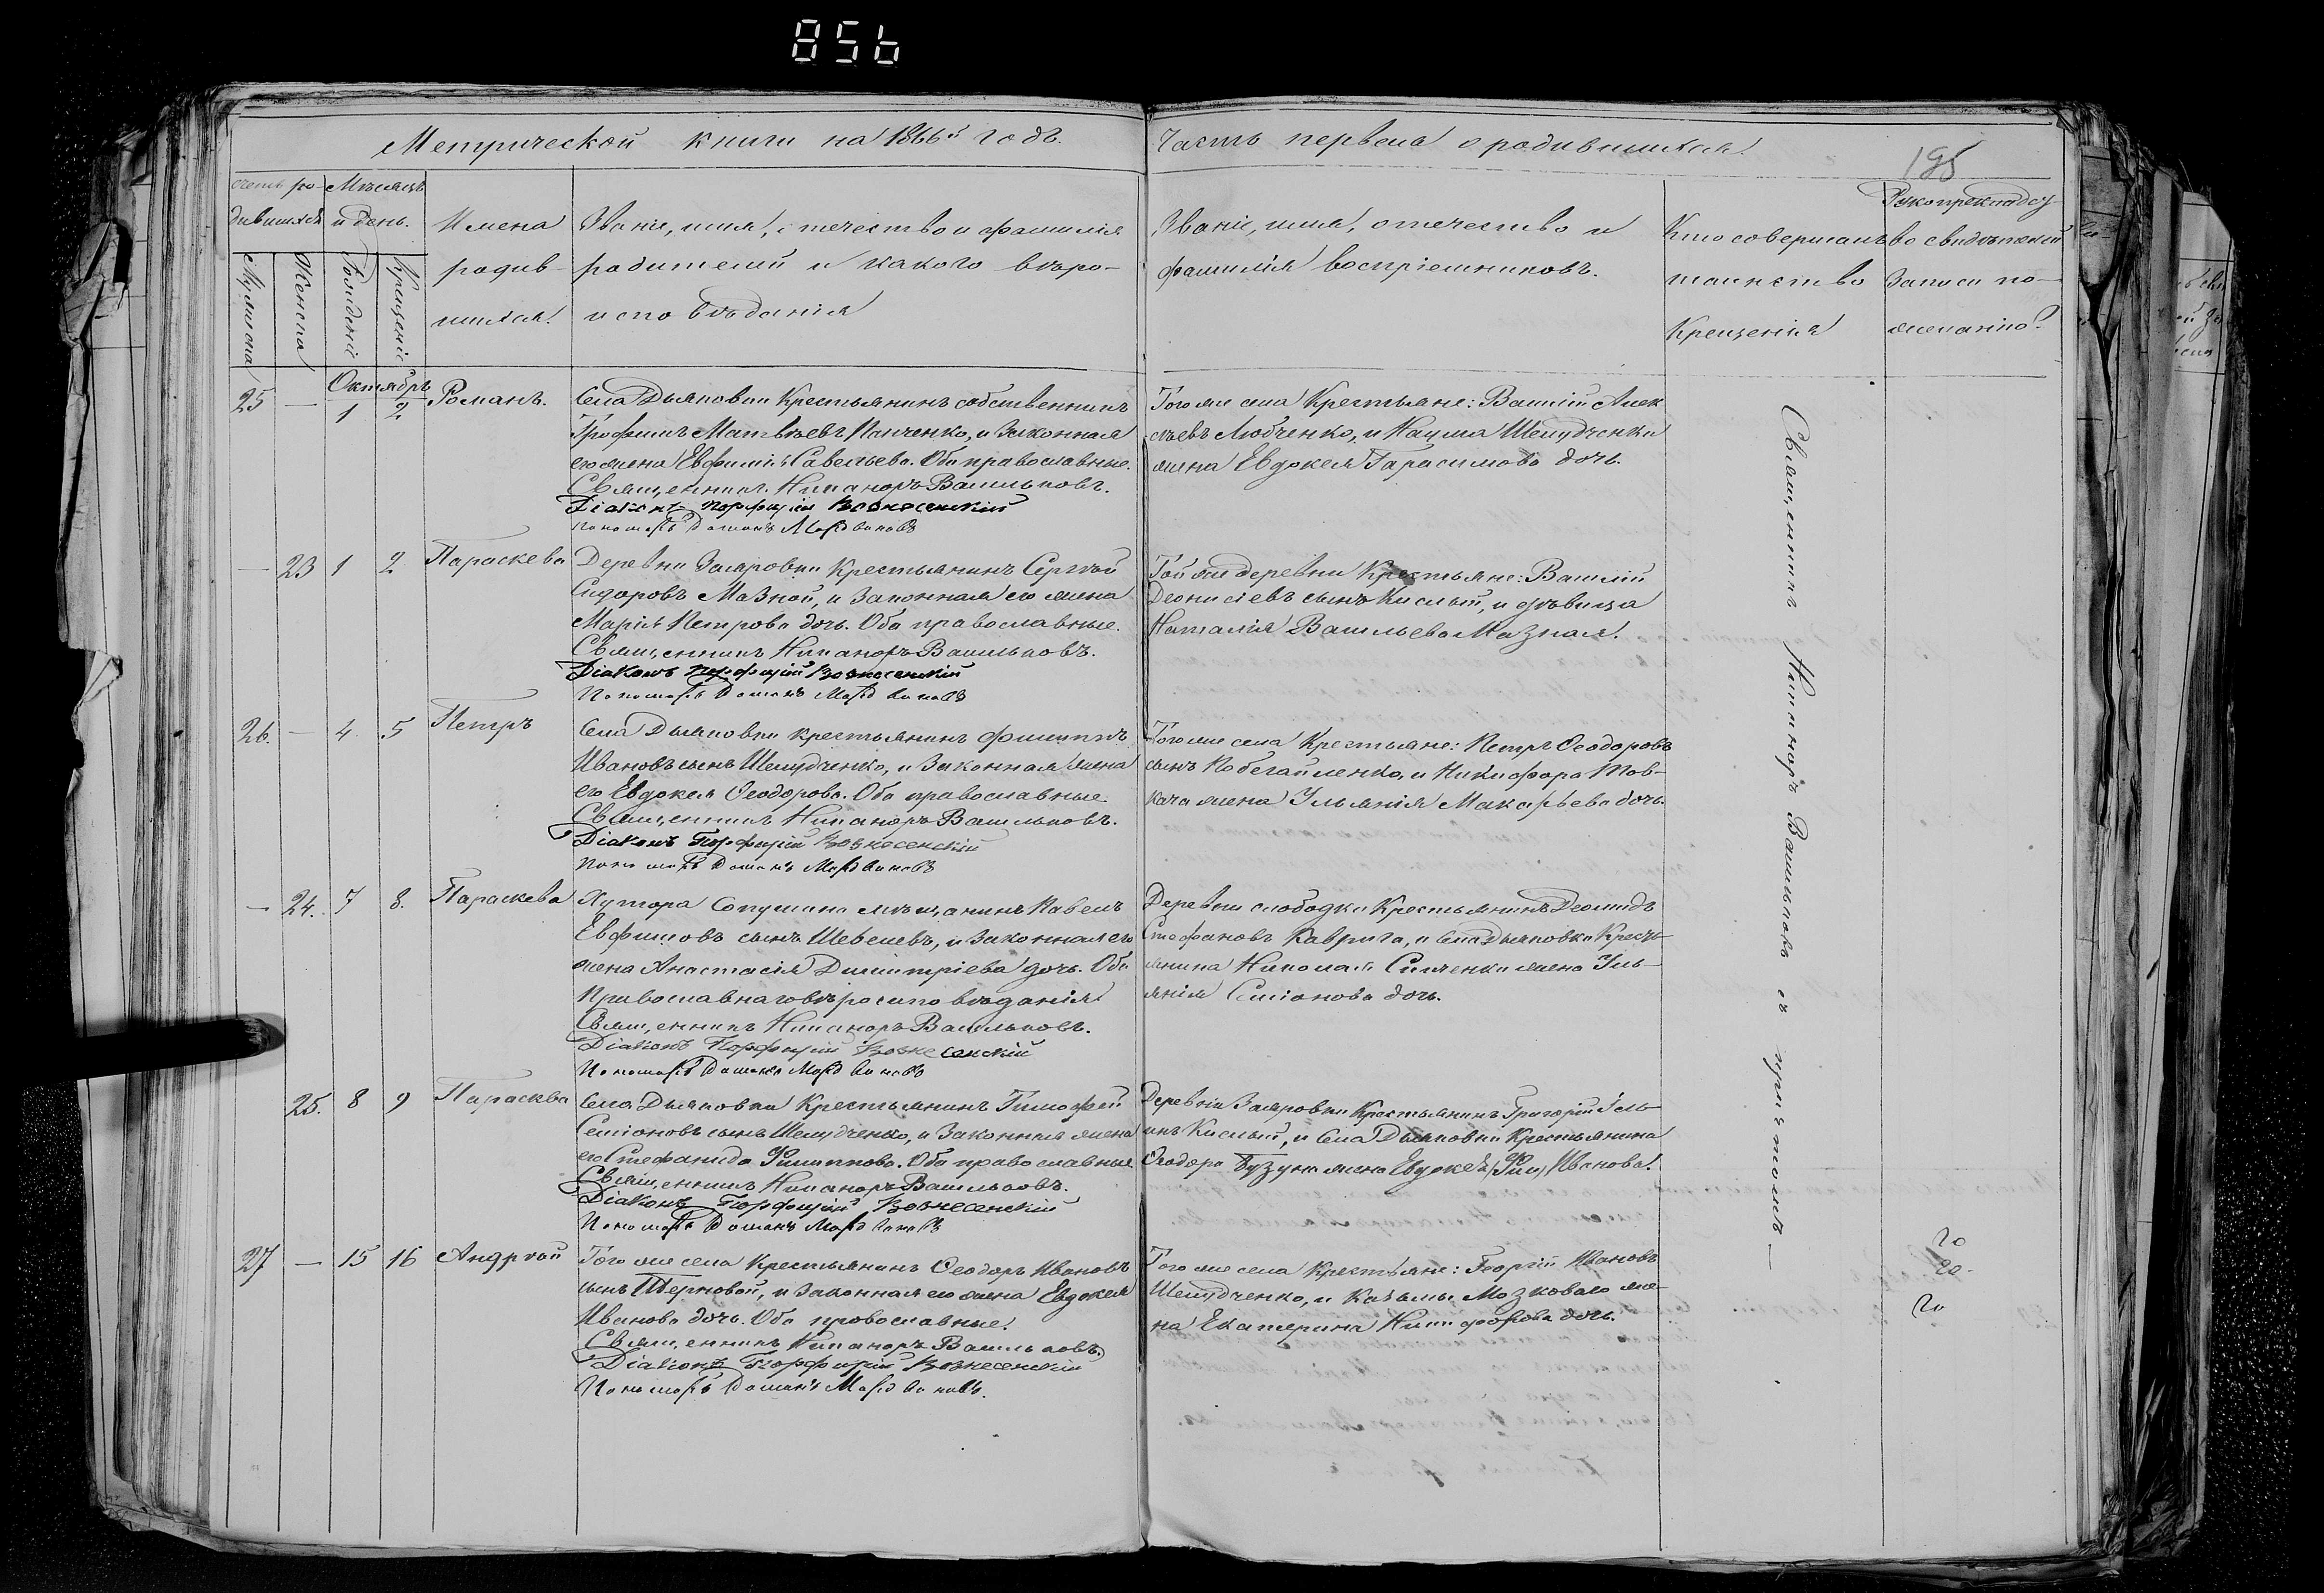 856
Метрической книги на 1866й годъ.
Часть первая о родившихся.
195
счетъ ро-
дившихся
Мѣсяцъ
и день.
Мужеска
Женска
Рожденіе
Крещеніе
Имена
родив-
шихся.
Званіе, имя, отечество и фамилія
родителей и какого вѣро-
исповѣданія
Званіе, имя, отечество и
фамилія воспріемниковъ.
Кто совершалъ
таинство
Крещенія
Рукоприкладст-
во свидѣтелей
записи по
желанію?
Октябръ
25 — 1 2 Романъ.
Села Дьяковки Крестьянинъ собственникъ
Трофимъ Матвѣевъ Панченко, и законная
его жена Евфимія Савельева. Оба православные.
Священникъ Никаноръ Васильковъ.
Діаконъ Порфирій Вознесенскій
Пономарь Доманъ
Того же села Крестьяне: Василій Алек
сѣевъ Любченко, и Наума Шемудченки
жена Евдокея Гарасимова дочь.
— 23 1 2 Параскева
Деревни Захаровки Крестьянинъ Сергѣй
Сидоровъ Мазной, и законная его жена
Марія Петрова дочь. Оба православные.
Священникъ Никаноръ Васильковъ.
Діаконъ Порфирій Вознесенскій
Пономарь Доманъ
Той же деревни Крестьяне: Василій
Деонисіевъ сынъ Кислый, и дѣвица
Наталія Васильева Мазная.
26. — 4. 5 Петръ
Села Дьяковки крестьянинъ Филиппъ
Ивановъ сынъ Шемудченко, и законная жена
его Евдокея Ѳеодорова. Оба православные.
Священникъ Никаноръ Васильковъ.
Діаконъ Порфирій Вознесенскій
Пономарь Доманъ
Того же села Крестьяне: Петръ Ѳеодоровъ
сынъ Побегайленко, и Никифора Тов-
кача жена Ульянія Макарьева дочь.
— 24. 7 8. Параскева
Хутора мѣщанинъ Павелъ
Евфимовъ сынъ Шевелевъ, и законная его
жена Анастасія Димитріева дочь. Оба
Православнаго вѣроисповѣданія
Священникъ Никаноръ Васильковъ.
Діаконъ Порфирій Вознесенскій
Пономарь Доманъ
Деревни слободки Крестьянинъ Деомидъ
Стефановъ Каврига, и села Дьяковки Кресть-
янина Николая жена Уль-
янія Симонова дочь.
25. 8 9 Парасква
Села Дьяковки Крестьянинъ Тимофей
Симоновъ сынъ Шемудченко, и законная жена
его Стефанида Филиппова. Оба православные
Священникъ Никаноръ Васильковъ.
Діаконъ Порфирій Вознесенскій
Пономарь Доманъ
Деревни Захаровки Крестьянинъ Григорій Иль-
инъ Кислый, и Села Дьяковки Крестьянина
Ѳеодора Бузун жена Евдокея Иванова.
27 — 15 16 Андрѣй
Того же села Крестьянинъ Ѳеодоръ Ивановъ
сынъ Терновой, и законная его жена Евдокея
Иванова дочь. Оба православные.
Священникъ Никаноръ Васильковъ.
Діаконъ Порфирій Вознесенскій
Пономарь Доманъ
Того же села Крестьяне: Георгій Ивановъ
Шемудченко, и Казьмы Мозковаго же-
на Екатерина Никифорова дочь.
Священникъ Никаноръ Васильковъ съ причтомъ —